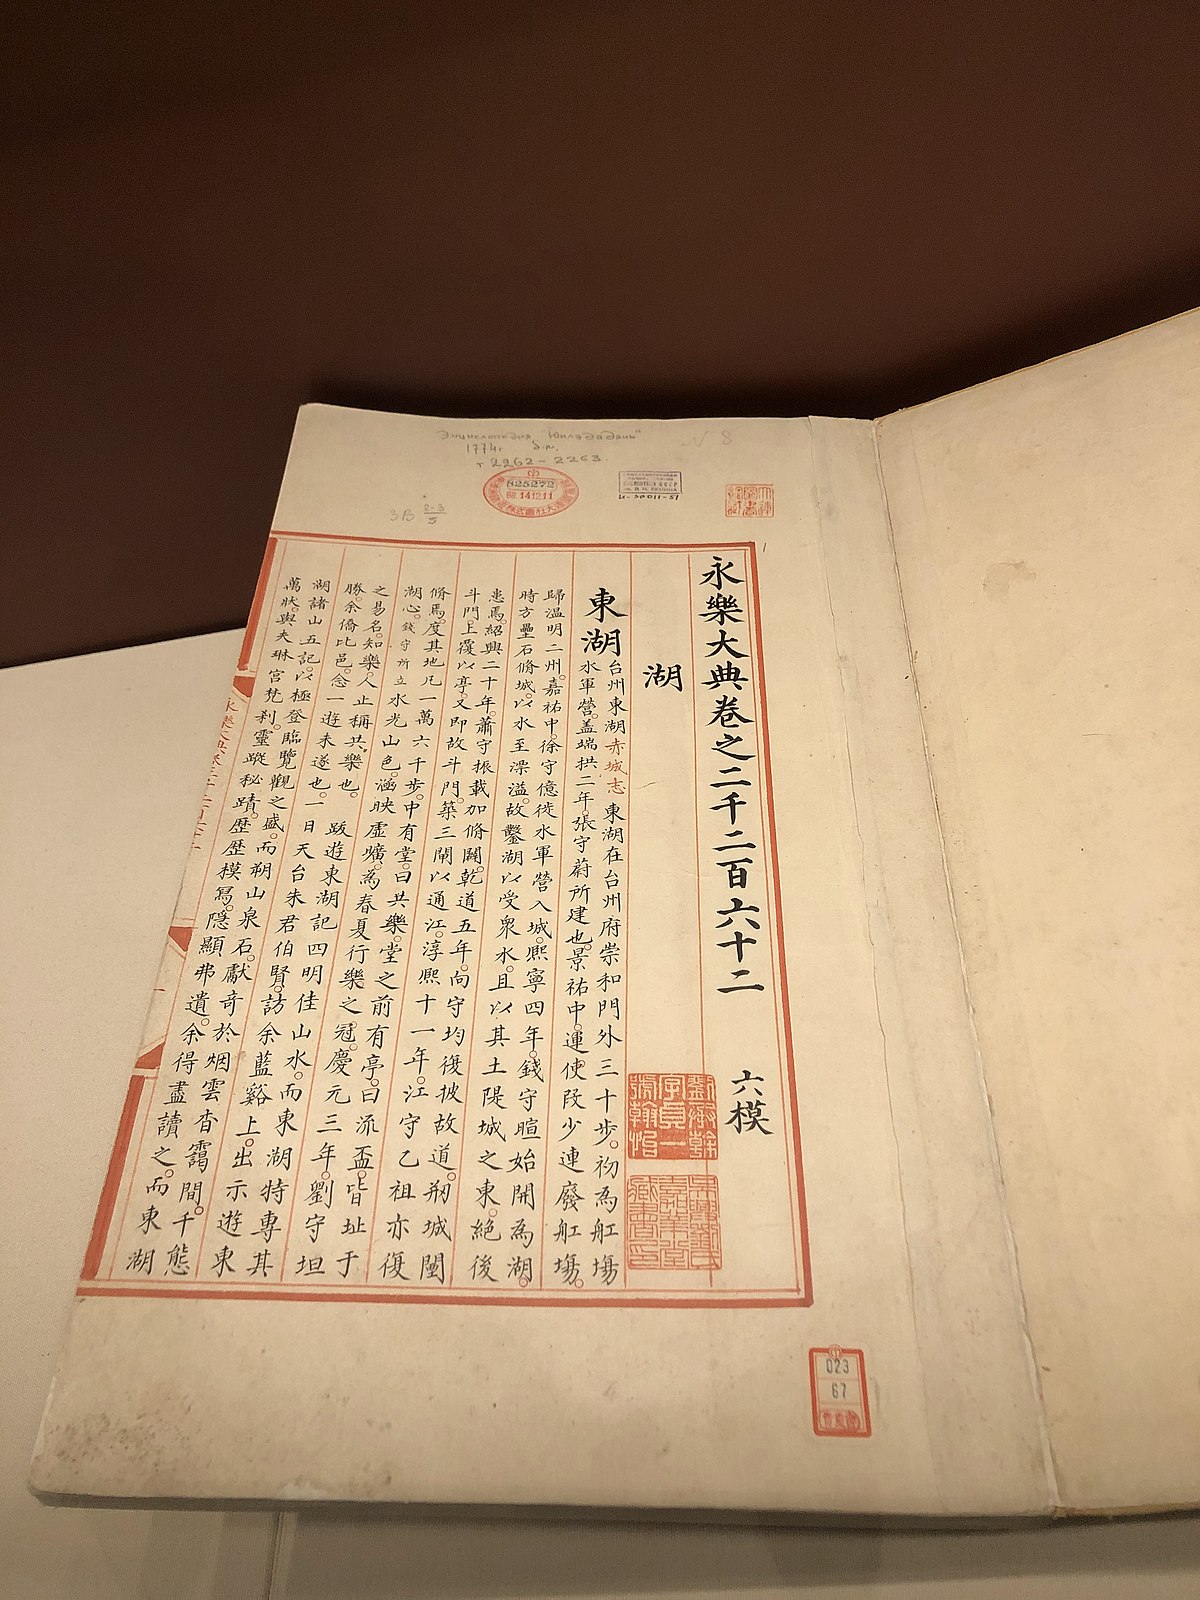 N 8
1774г.
т 2262-2263
825272
昭.14.12.11
3В 2-3/5
永樂大典卷之二千二百六十二 六模
湖
東湖
台州東湖赤城志東湖在台州府崇和門外三十步。初為舡塲
水軍營。蓋端拱二年。張守蔚所建也。景祐中。運使段少連廢舡塲。
歸溫明二州。嘉祐中。徐守億徙水軍營入城。熙寧四年。錢守暄始開為湖。
時方壘石脩城。以水至漂溢。故鑿湖以受衆水。且以其土隄城之東。絕後
患焉。紹興二十年。蕭守振載加脩闢。乾道五年。向守均復披故道。剏城闉
斗門。上覆以亭。又即故斗門。築三閘以通江。淳熙十一年。江守乙祖亦復
脩焉。度其地凡一萬六千步。中有堂。曰共樂。堂之前有亭。曰流盃。皆址于
湖心。錢守所立水光山色。涵映虛曠。為春夏行樂之冠。慶元三年。劉守坦
之易名。知樂。人止稱共樂也。 跋遊東湖記四明佳山水。而東湖特專其
勝。余僑比邑。念一遊未遂也。一日天台朱君伯賢。訪余藍谿上。出示遊東
湖諸山五記。以極登臨覽觀之盛。而朔山泉石。獻奇於烟雲杳靄間。千態
萬狀。與夫琳宮梵刹。靈蹤秘蹟。歷歷模寫。隱顯弗遺。余得盡讀之。而東湖
023
67